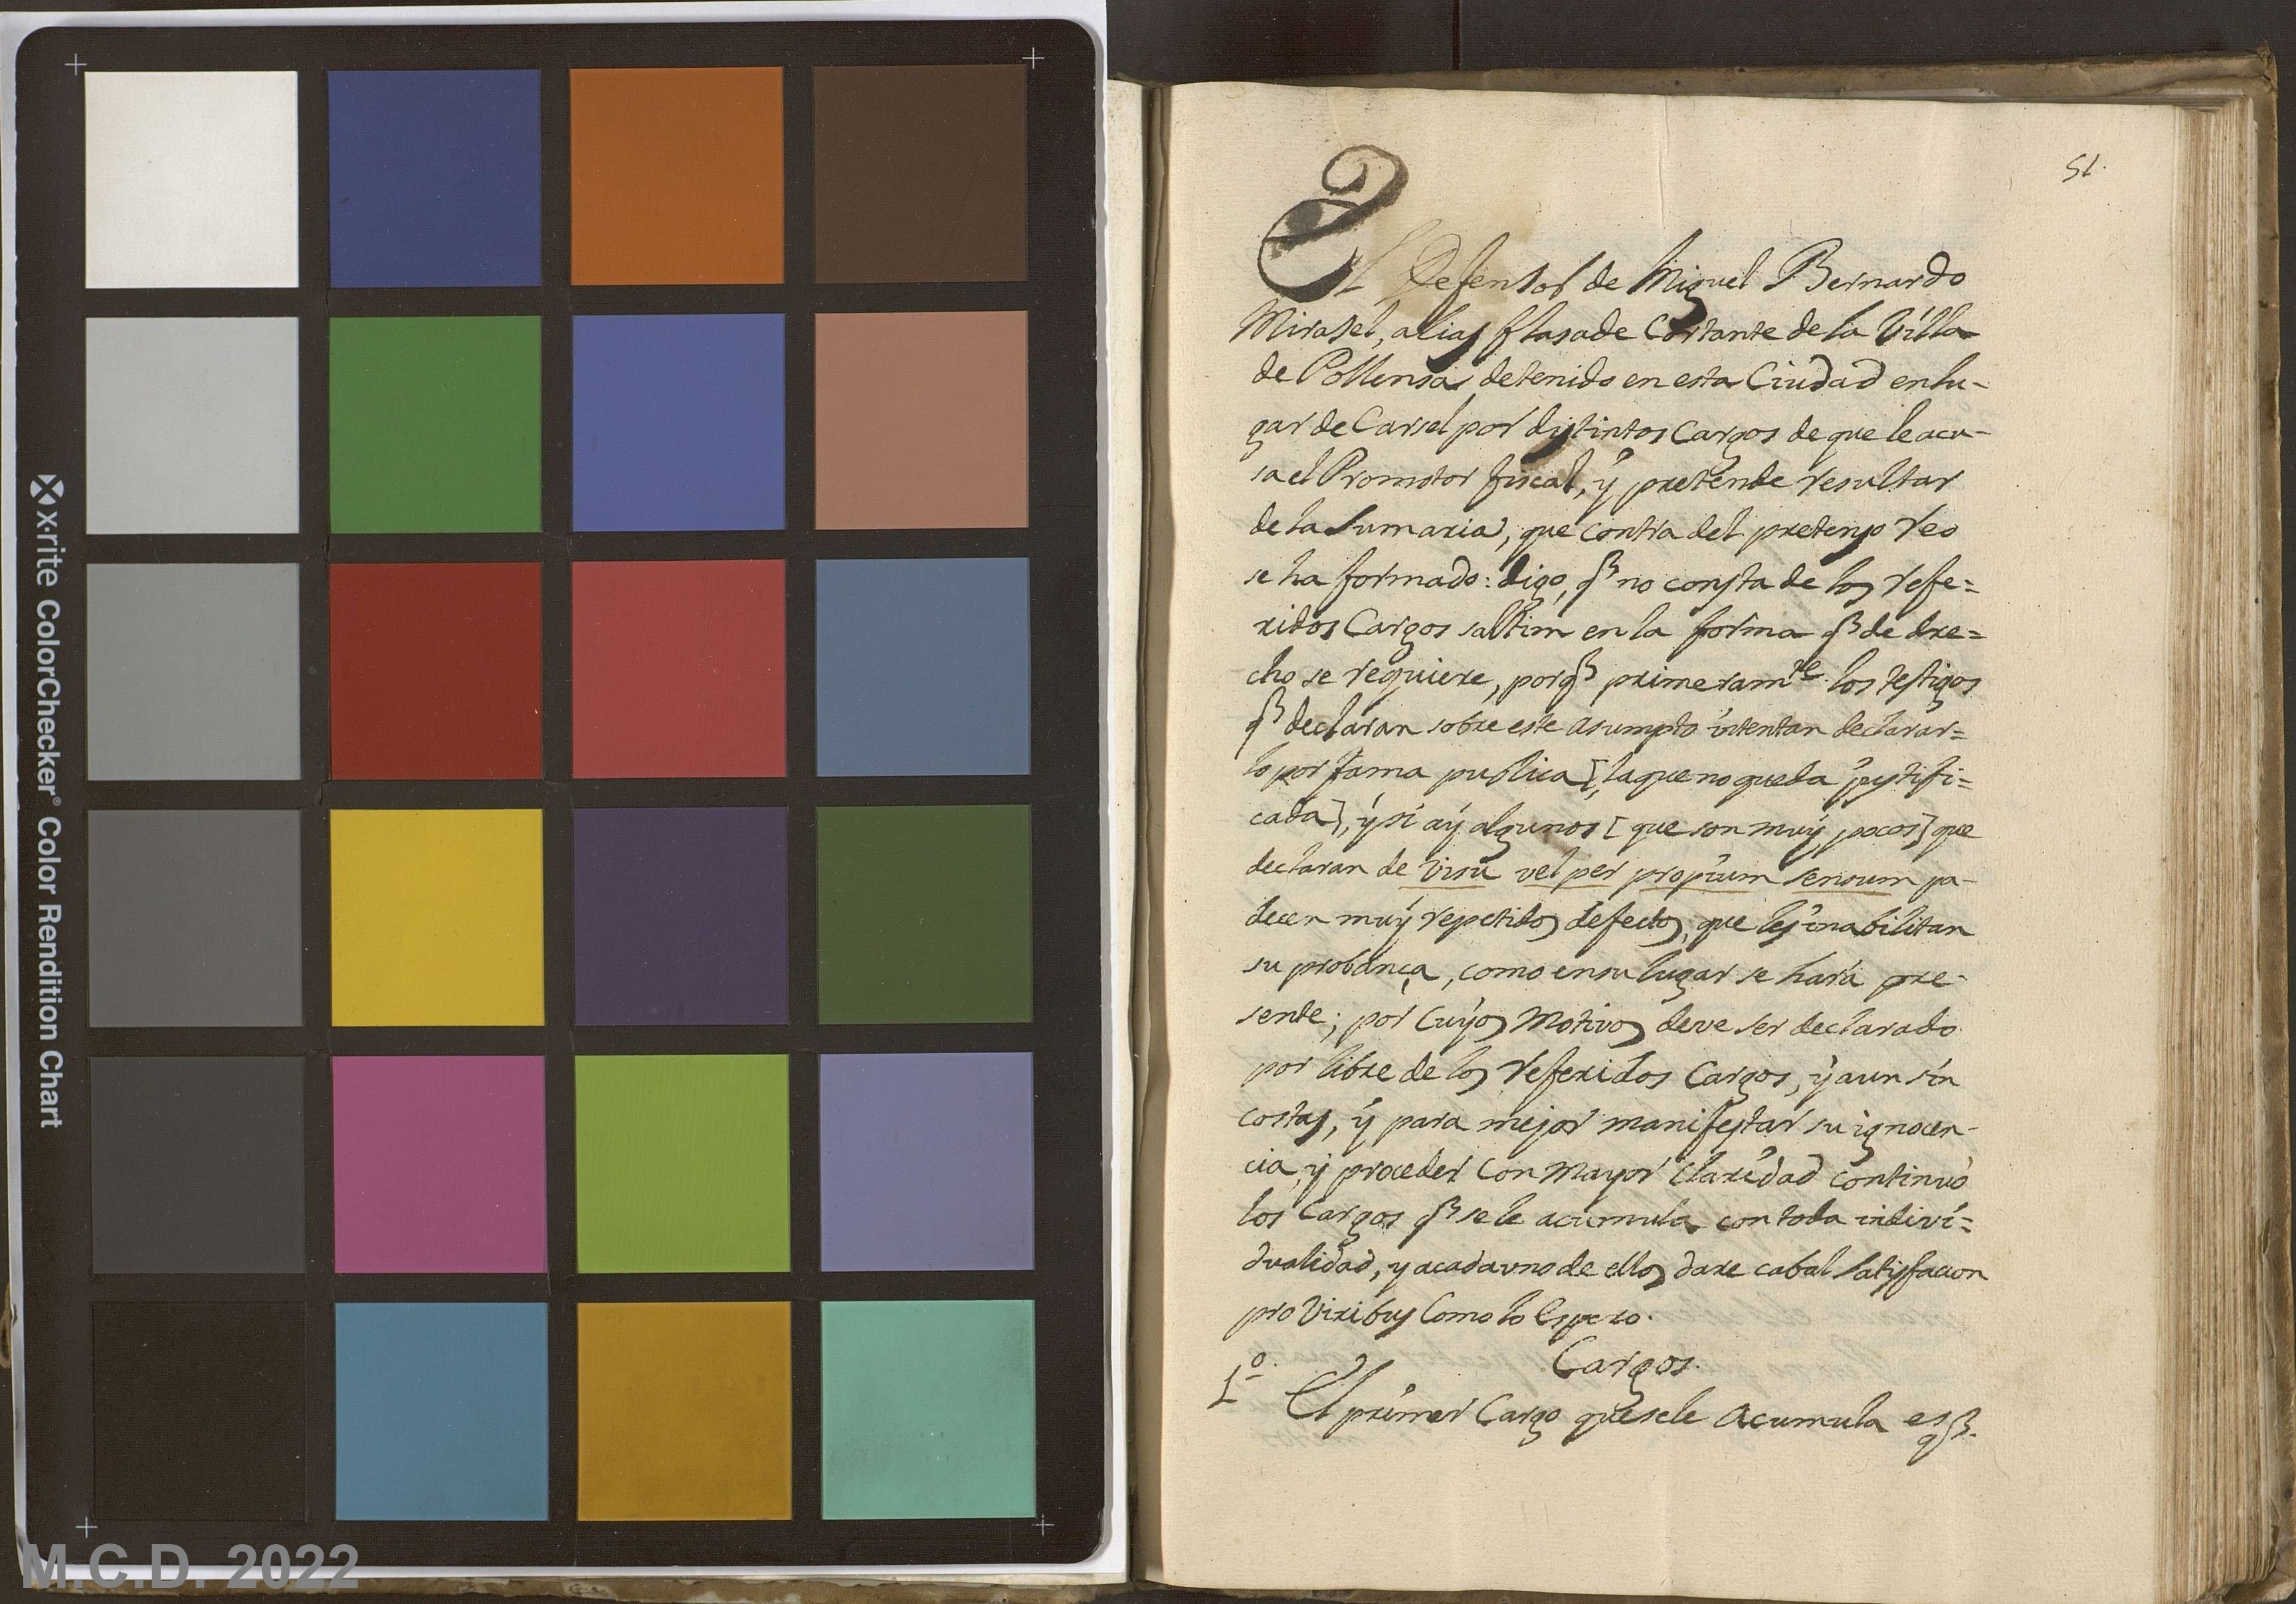 x·rite ColorChecker® Color Rendition Chart
M.C.D. 2022
51.
El Defensor de Miguel Bernardo
Mirasel, alias flasade Cortante de la Villa
de Pollensa detenido en esta Ciudad en lu-
gar de Carsel por distintos Cargos de que le acu-
sa el Promotor fiscal, ÿ pretende resultar
de la Sumaria, que contra del pretenso reo
se ha formado: digo, q no consta de los refe=
ridos Cargos saltim en la forma q de dre=
cho se requiere, porq primeramte. los testigos
q declaran sobre este asumpto intentan declarar=
lo por fama publica [, la que no queda justifi=
cada], ÿ si aÿ algunos [ que son muÿ pocos] que
declaran de visu vel per propium sensum pa-
decen muÿ repetidos defectos, que les inabilitan
su probança, como en su lugar se hará pre-
sente; por cuÿos Motivos deve ser declarado
por libre de los refferidos Cargos, ÿ aun sin
costas, ÿ para mejor manifestar su ignocen-
cia, ÿ proceder con mayor claridad continuo
los Cargos q se le acumula con toda indivi=
dualidad, y a cada uno de ellos dare cabal satisfacion
pro Viribus Como lo Espero.
Cargos.
1º. El primer Cargo que se le Acumula es q.